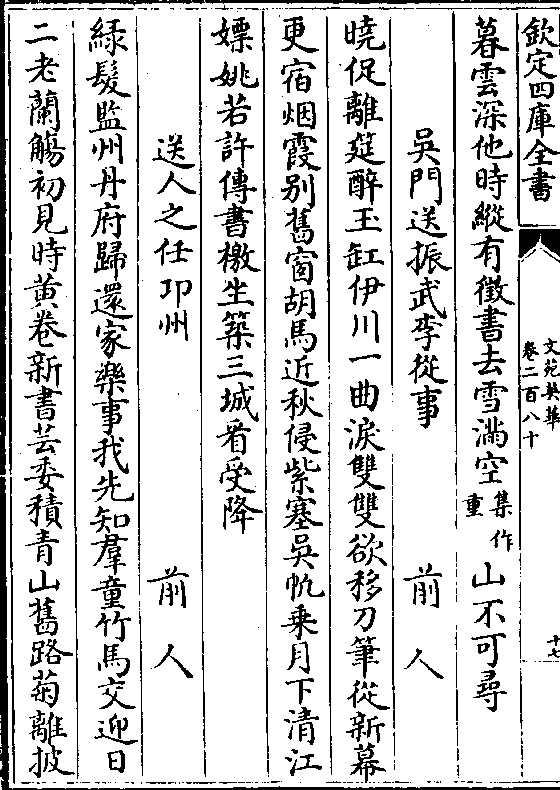 欽定四庫全書
文苑英華
卷二百八十
十七
暮雲深他時縱有徵書去雪滿空集作重山不可尋
吳門送振武李從事 前人
曉促離筵醉玉缸伊川一曲淚雙雙欲移刀筆從新幕
更宿烟霞别舊窗胡馬近秋侵紫塞吳帆乗月下清江
嫖姚若許傳書檄坐築三城看受降
送人之任邛州 前人
綠髮監州丹府歸還家樂事我先知羣童竹馬交迎日
二老蘭觴初見時黄卷新書芸委積青山舊路菊離披